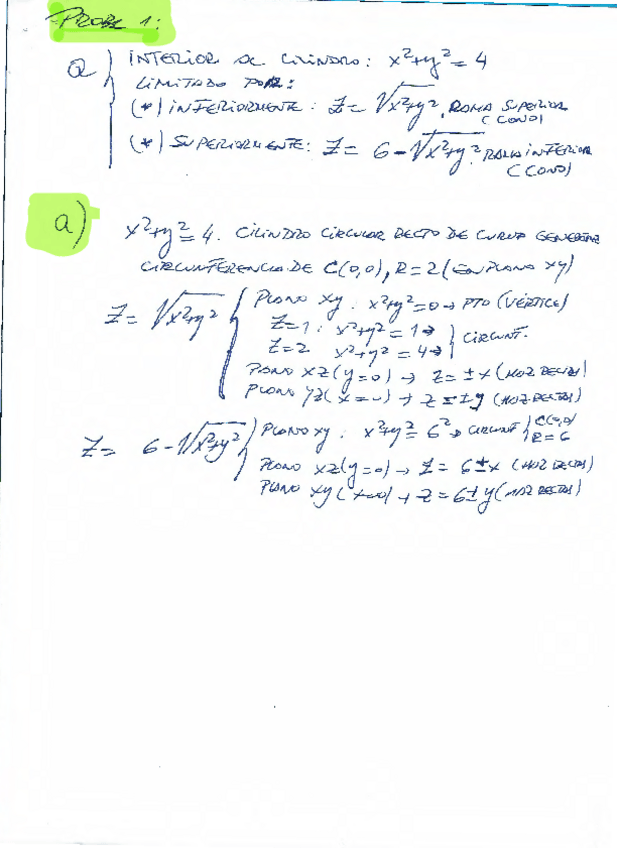 PROBL 1:
Q INTERIOR DE CILINDRO: x²+y²=4
LIMITADO POR:
(*) INFERIORMENTE: Z= √x²+y², RAMA SUPERIOR
(CONO)
(*) SUPERIORMENTE: Z= 6-√x²+y². RAMA INFERIOR
(CONO)
a) x²+y²=4. CILINDRO CIRCULAR RECTO DE CURVA GENERATRIZ
CIRCUNFERENCIA DE C(0,0), R=2 (EN PLANO XY)
Z= √x²+y² PLANO XY: x²+y²=0 → PTO (VÉRTICE)
Z=1: x²+y²=1 →
Z=2 x²+y²=4 → CIRCUNF.
PLANO XZ (y=0) → Z=±x (HAZ RECTAS)
PLANO YZ (x=0) → Z=±y (HAZ RECTAS)
Z= 6-√x²+y² PLANO XY: x²+y²=6² → CIRCUNF C(0,0)
R=6
PLANO XZ (y=0) → Z=6±x (HAZ RECTAS)
PLANO XY (x=0) → Z=6±y (HAZ RECTAS)